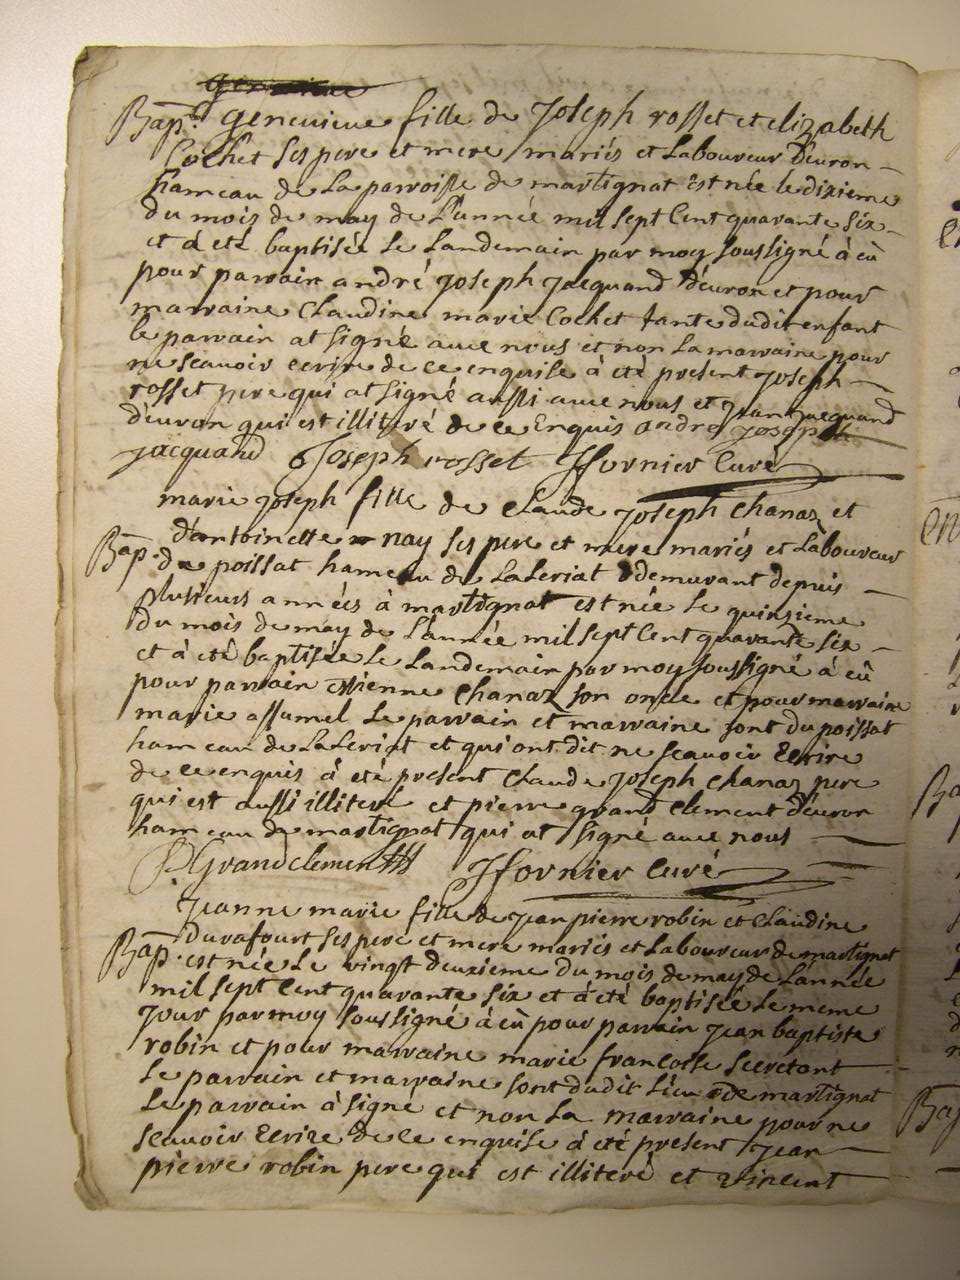 Bap. genevieve fille de Joseph rosset et elizabeth
Cochet ses pere et mere mariés et Laboureur D'euron
hameau de La parroisse de martignat Est née le dixieme
du mois de may de L'année mil sept Cent quarante six
et à eté baptisée Le Landemain par moy soussigné à eû
pour parrain andré Joseph Jacquand D'euron et pour
marraine Claudine marie Cochet tante dudit enfant
le parrain at signé avec nous et non La marraine pour
ne scavoir ecrire de ce enquise à eté present Joseph
rosset pere qui at signé aussi avec nous et Jean Jacquand
d'euron qui est illiteré de ce Enquis andré Joseph
Jacquand Joseph rosset Jfornier Curé
marie Joseph fille de Claude Joseph Chanaz et
d'antoinette nay ses pere et mere mariés et Laboureur
Bap. de poissat hameau de LaLeriat demurant depuis
plusieurs années à martignat est née Le quinsieme
du mois de may de L'année mil sept Cent quarante six
et à eté baptisée Le Landemain par moy soussigné à eû
pour parrain Estienne Chanaz son oncle et pour marraine
marie assumel Le parrain et marraine sont du poissat
hameau de LaLeriat et qui ont dit ne scavoir Ecrire
de ce enquis à eté present Claude Joseph Chanaz pere
qui est aussi illiteré et pierre grand Clement d'euron
hameau de martignat qui at signé avec nous
P. Grandclement Jfornier Curé
Jeanne marie fille de Jean pierre robin et Claudine
Durafourt ses pere et mere mariés et Laboureur de martignat
Bap. est née Le vingt deuxieme du mois de may de L'année
mil sept Cent quarante six et à eté baptisée Le meme
Jour par moy soussigné à eû pour parrain Jean baptiste
robin et pour marraine marie francoise secretant
Le parrain et marraine sont dudit Lieu de martignat
Le parrain à signé et non La marraine pour ne
scavoir Ecrire de ce enquise à eté present Jean
pierre robin pere qui est illiteré et vincent